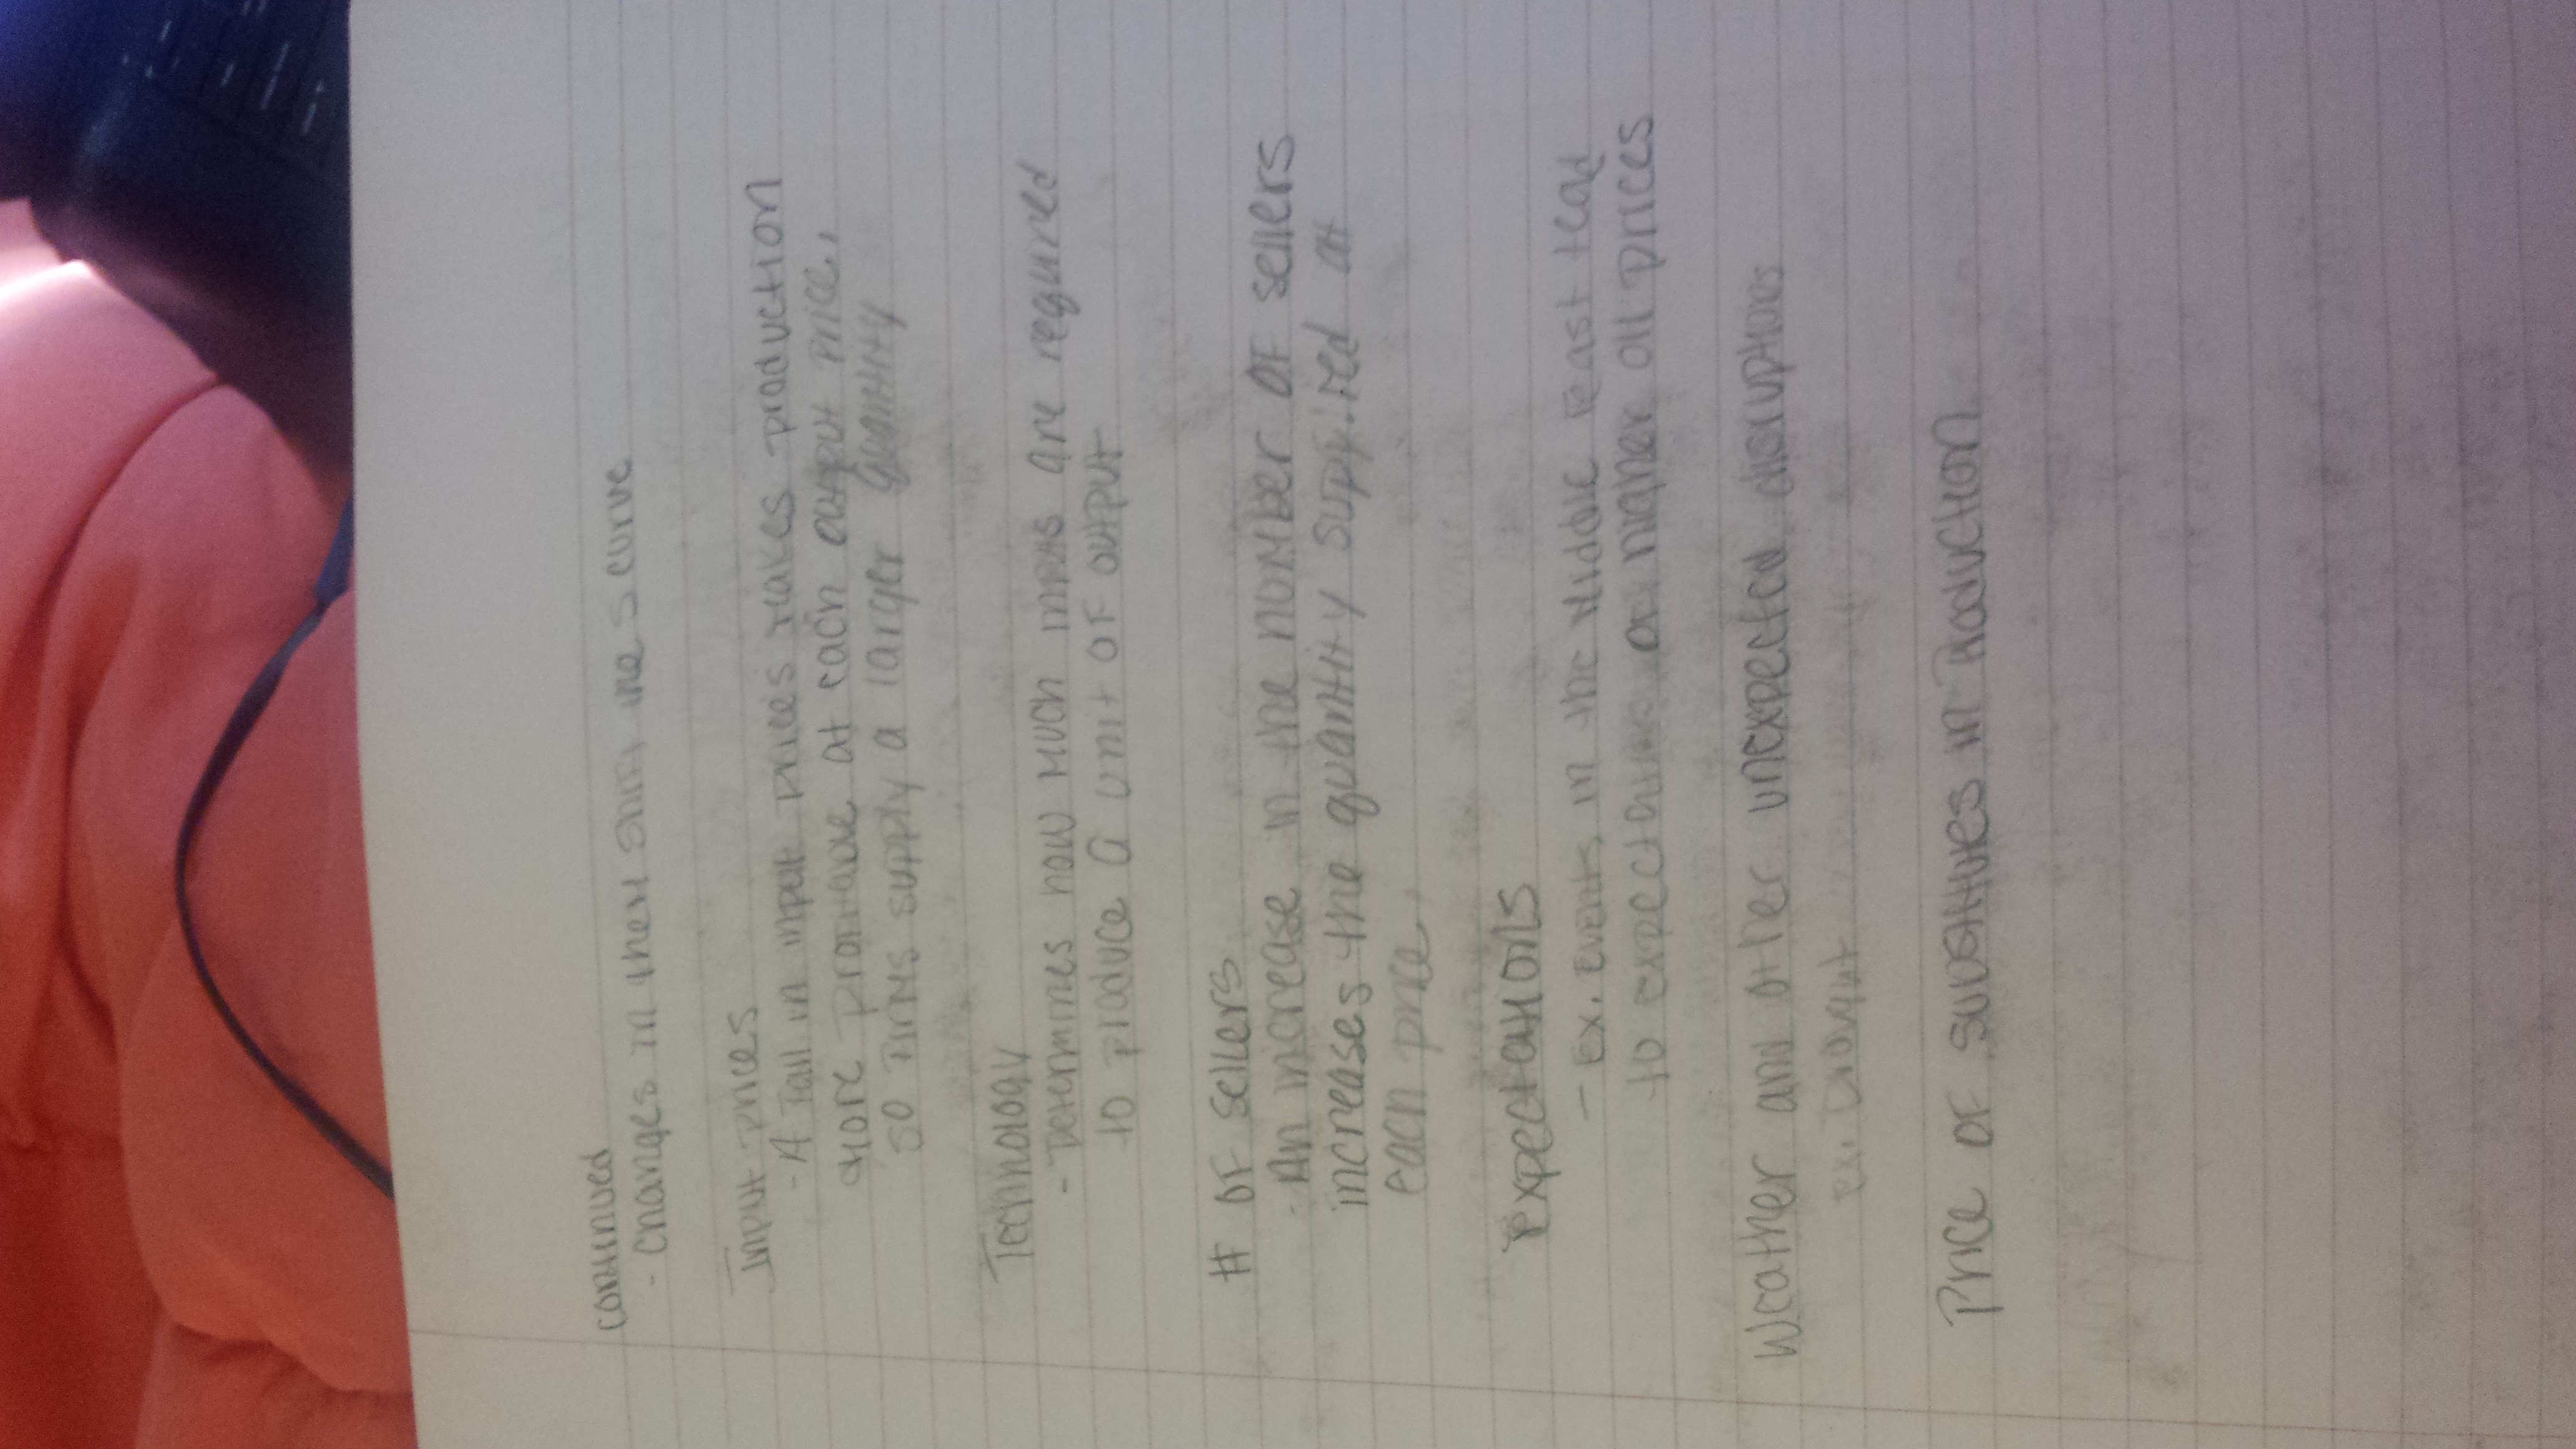 continued
- changes in them shift the s curve
Input prices
- A fall in input prices makes production
more profitable at each output price,
so firms supply a larger quantity
Technology
- Determines how much inputs are required
to produce a unit of output
# of sellers
- An increase in the number of sellers
increases the quantity supplied at
each price
Expectations
- Ex. events in the Middle East lead
to expectations of higher oil prices
Weather and other unexpected disruptions
ex. Drought
Price of substitutes in Production